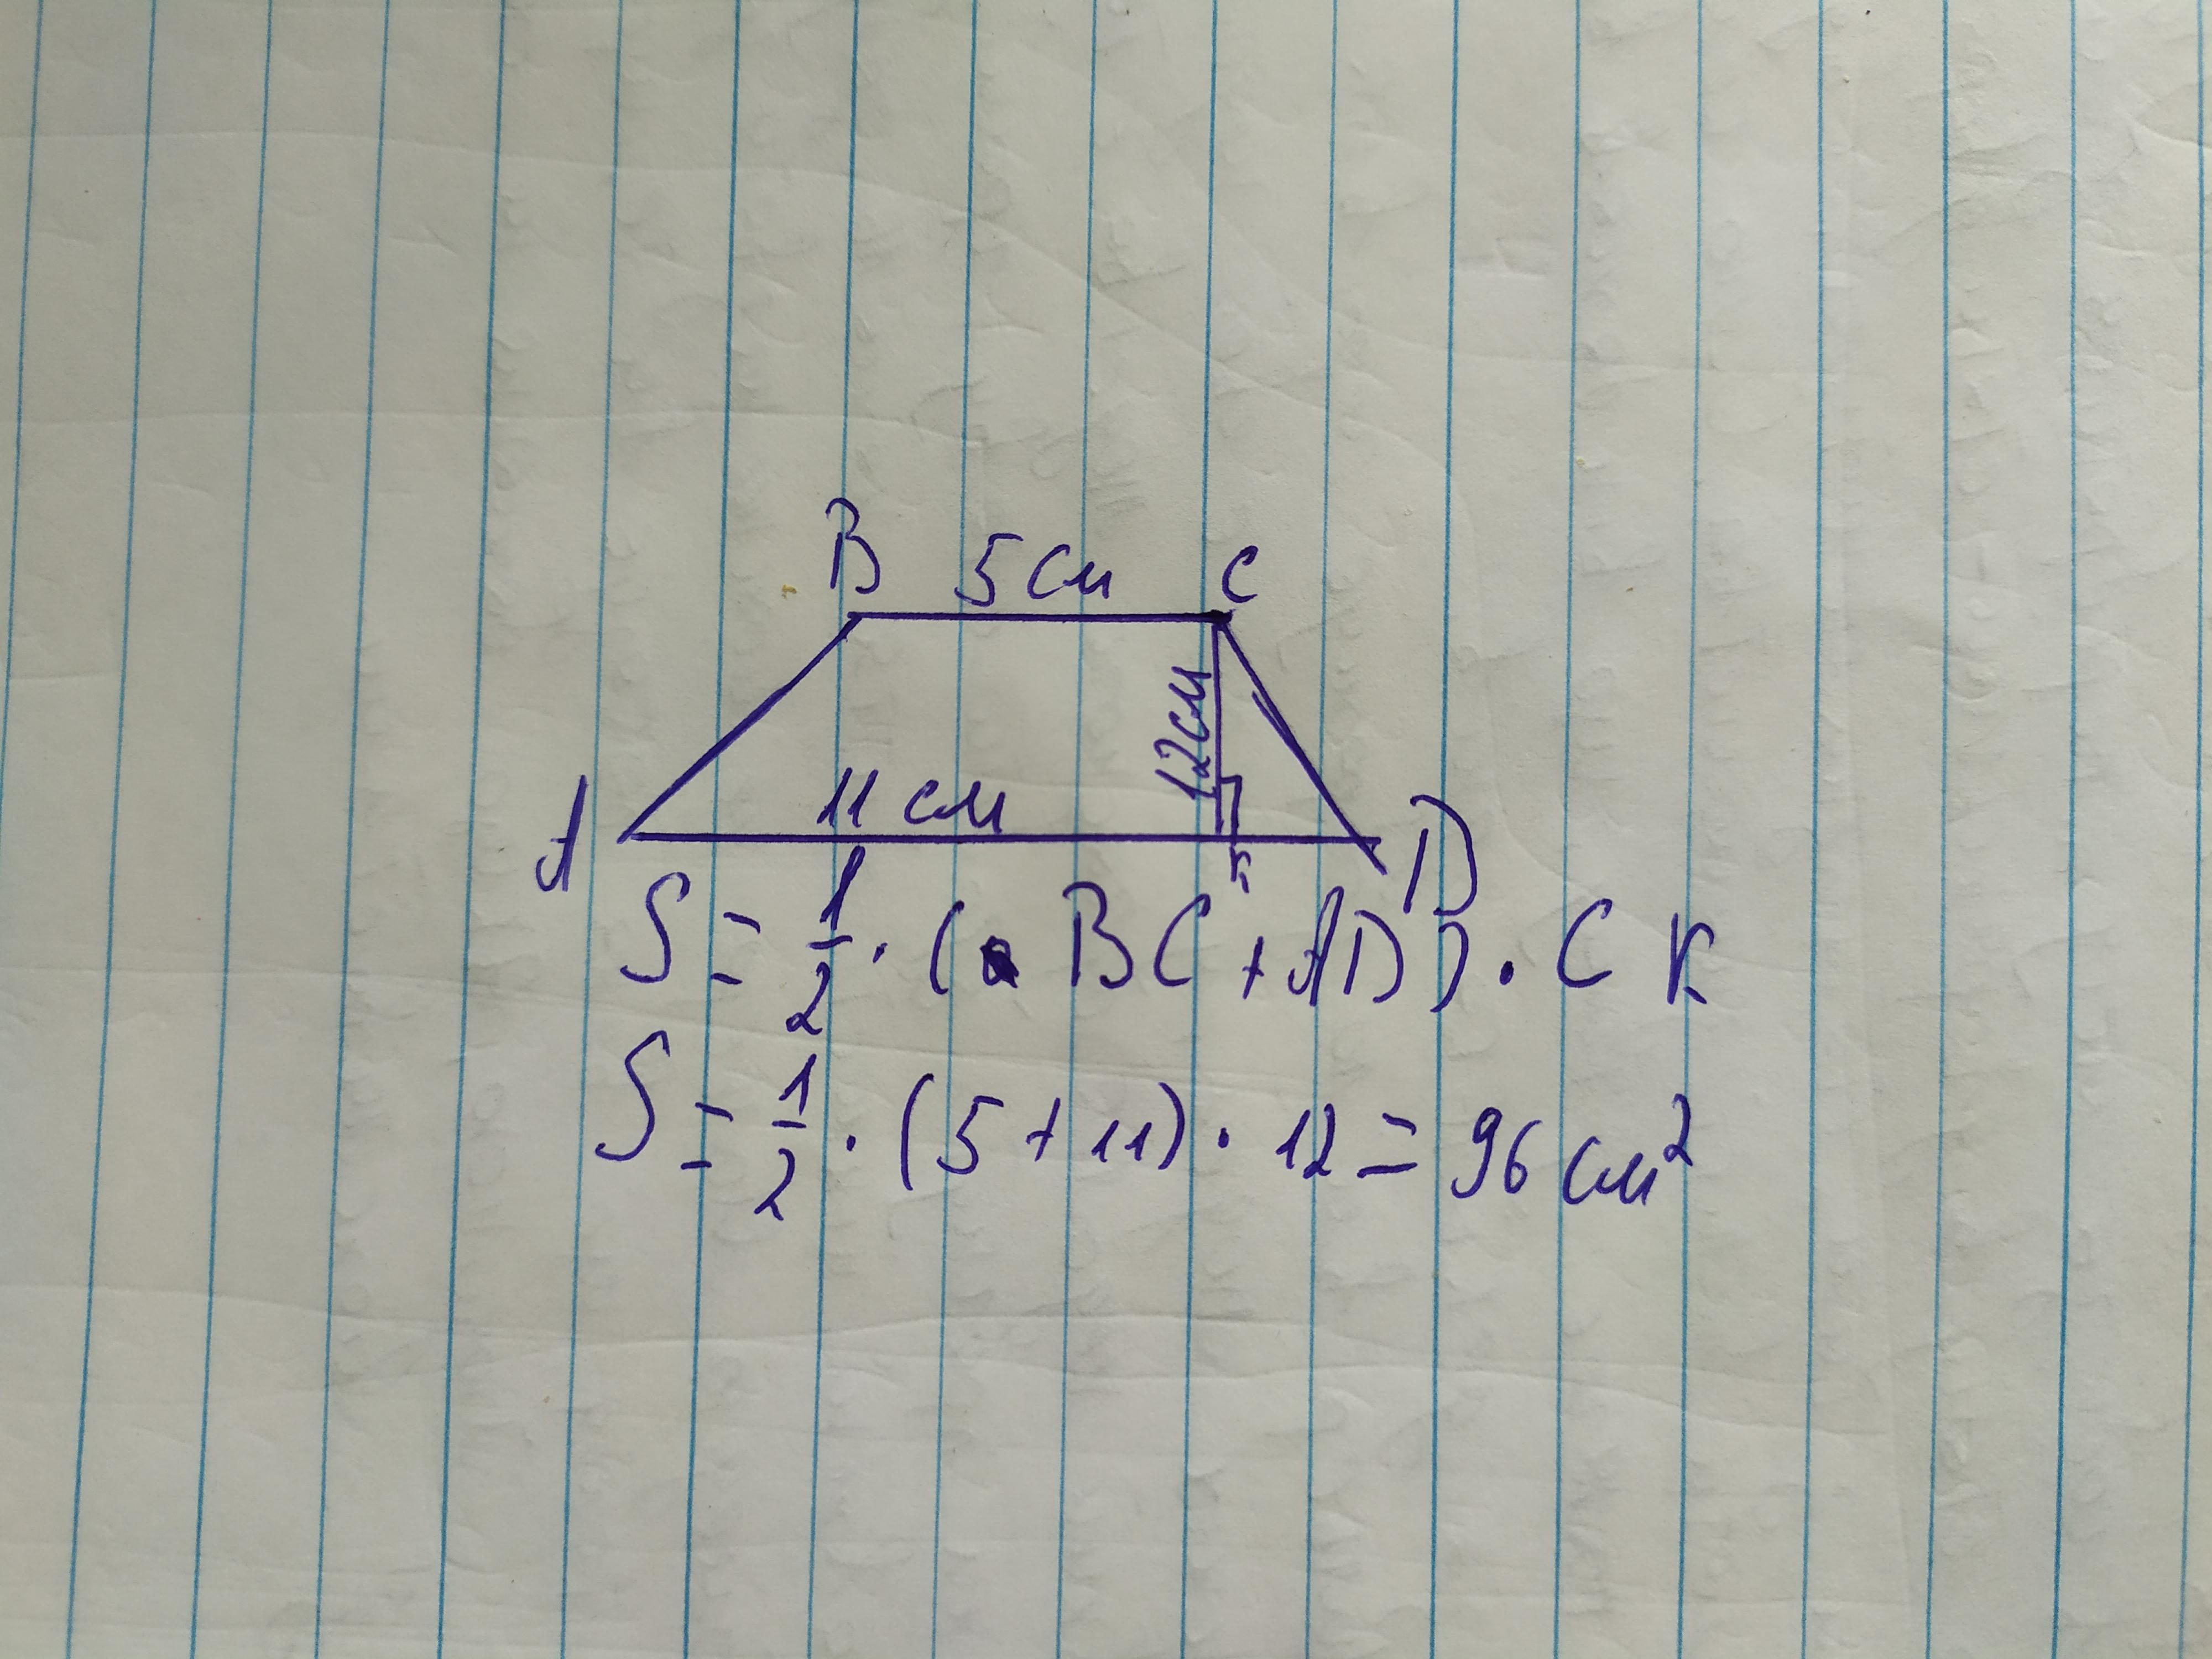 B 5 см C
12 см
11 см
A K D
S = 1/2 · (BC + AD) · CK
S = 1/2 · (5 + 11) · 12 = 96 см²